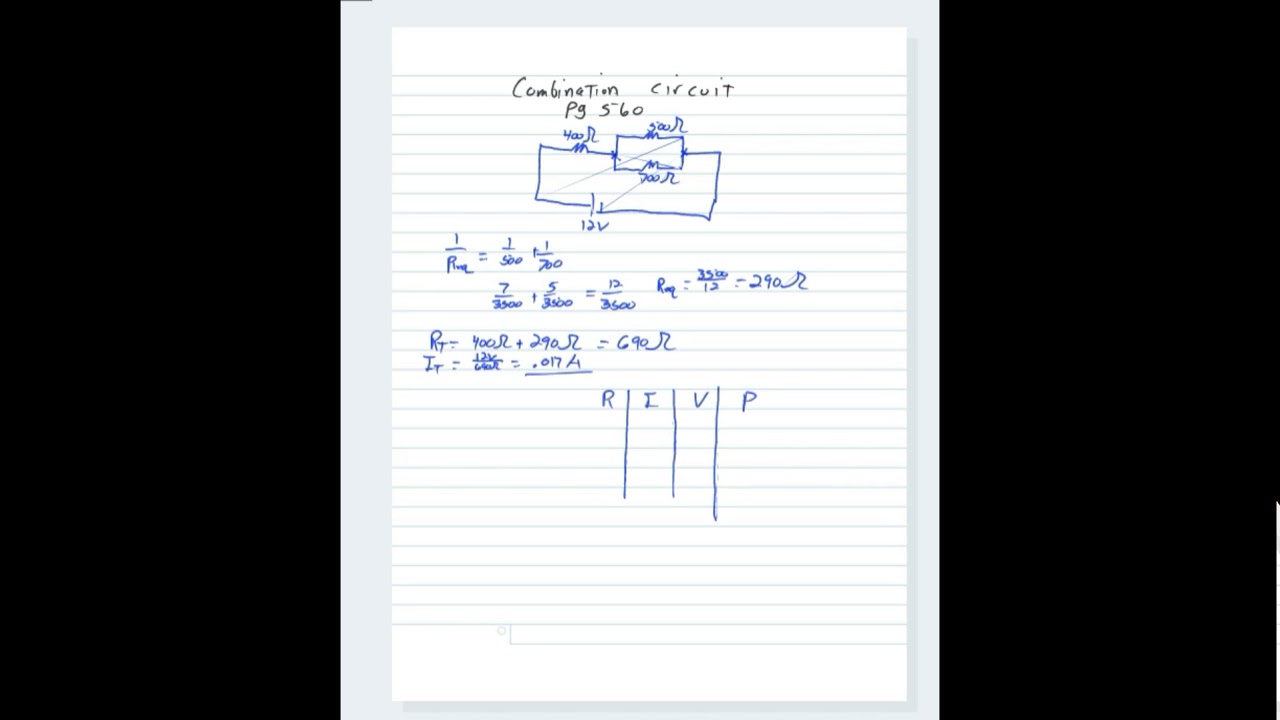 Combination circuit
Pg 560
400Ω
500Ω
700Ω
12V
1/Req = 1/500 + 1/700
7/3500 + 5/3500 = 12/3500 Req = 3500/12 = 290Ω
RT = 400Ω + 290Ω = 690Ω
IT = 12V/690Ω = .017A
R I V P